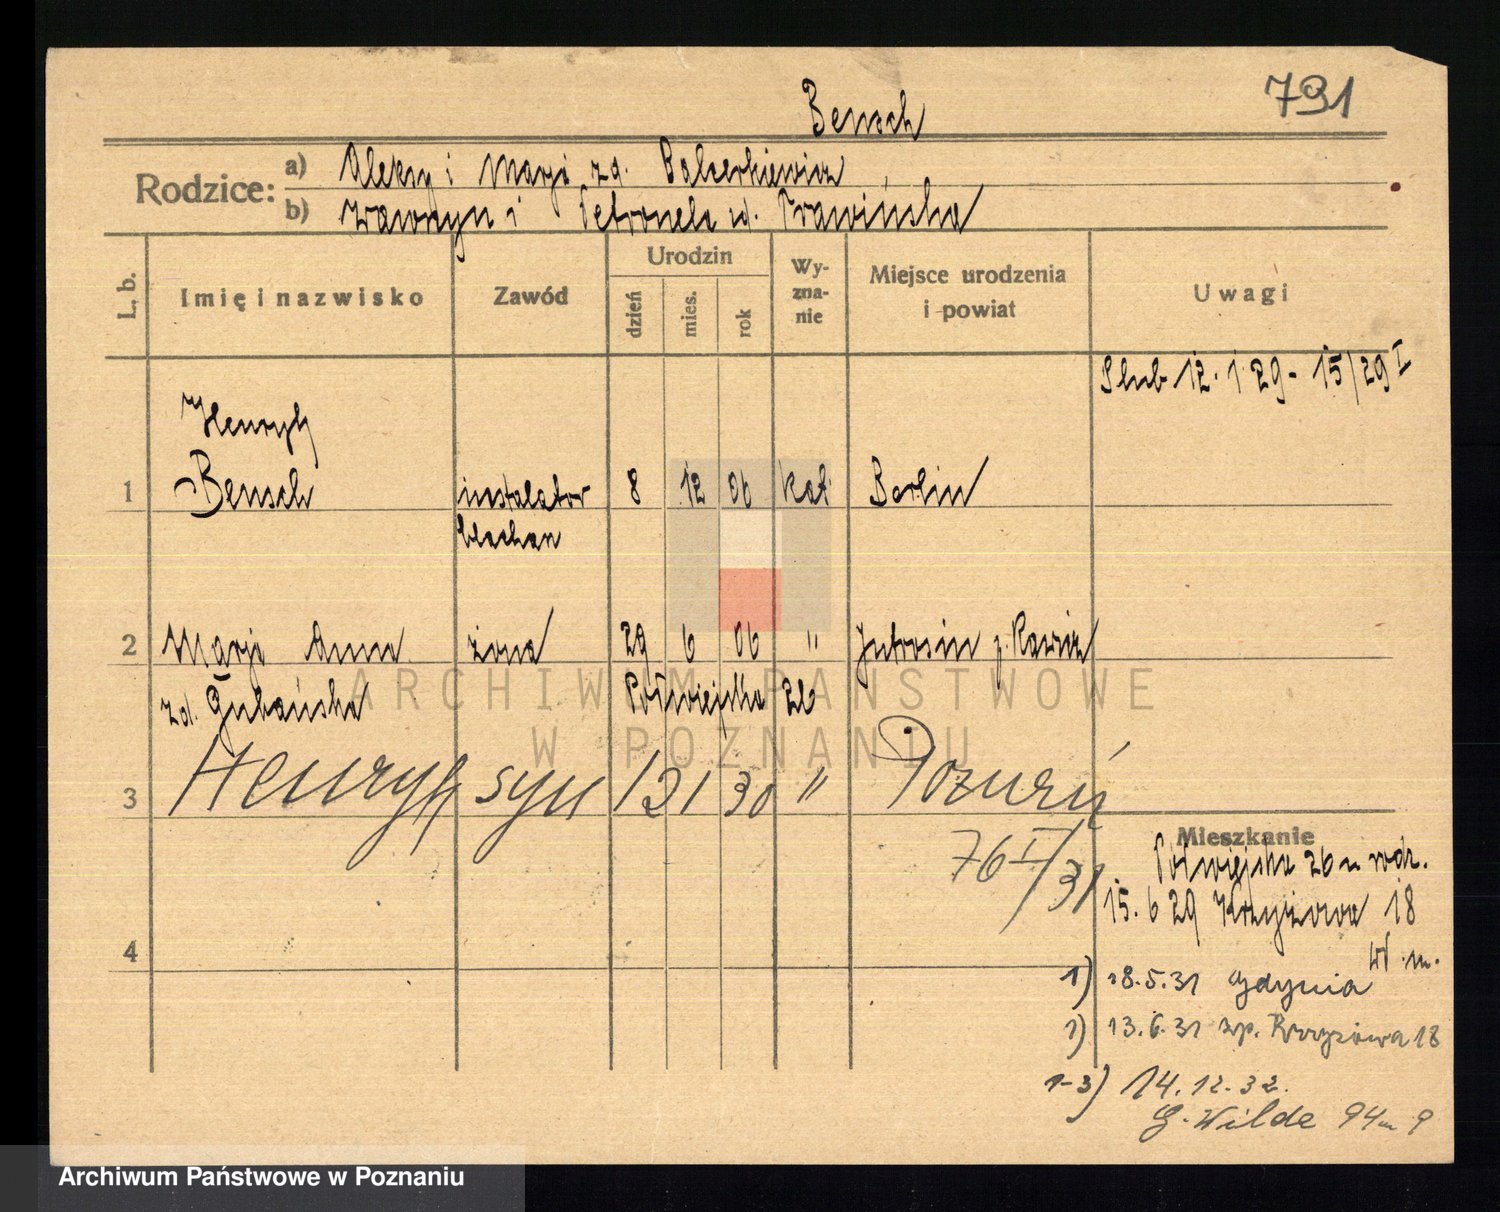 791
Bensch
Rodzice: a) Aleksy i Marja zd. Balcerkiewicz
b) Wawrzyn i Petronela zd. Prawińska
L. b. Imię i nazwisko Zawód Urodzin dzień mies. rok Wyznanie Miejsce urodzenia i powiat Uwagi
Ślub 12. 1 29 - 15/29 I
Henryk
1 Bensch instalator 8 12 06 kat. Berlin
blachan
2 Marja Anna żona 29 6 06 " Jutrosin p. Rawicz
zd. Gukańska Półwiejska 26
3 Henryk syn 12 1 30 " Poznań
76 I/31
Mieszkanie
Półwiejska 26 u rodz.
15. 6 29 Krzyżowa 18
4
W. m.
1) 18.5.31 Gdynia
1) 13.6.31 zp. Krzyżowa 18
1-3) 14.12.32.
G. Wilde 94 m 9
ARCHIWUM PAŃSTWOWE
W POZNANIU
Archiwum Państwowe w Poznaniu